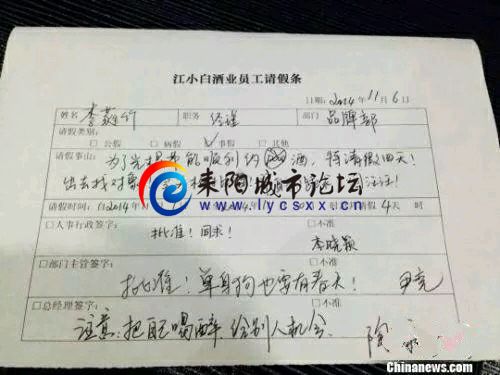 江小白酒业员工请假条
日期：2014年11月6日
姓名 李 职务 经理 部门 品牌部
请假类别：
□公假 □病假 ☑事假 □其他
请假事由：为了光棍节能顺利约 酒，特请假四天！
出去找对象
耒阳城市论坛
www.lycsxx.cn
请假时间：自2014年 请假4天 时
□人事行政签字： □不准
批准！同求！ 李晓颖
□部门主管签字： □不准
批准！单身狗也要有春天！
□总经理签字： □不准
注意：把自己喝醉，给别人机会。
Chinanews.com